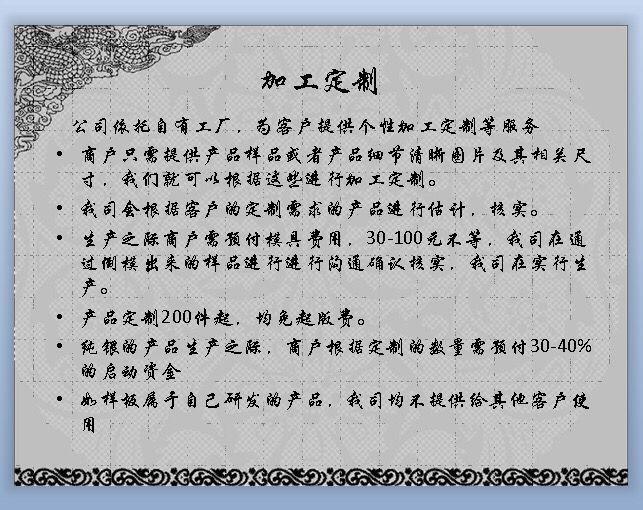 加工定制
公司依托自有工厂，为客户提供个性加工定制等服务
• 商户只需提供产品样品或者产品细节清晰图片及其相关尺
寸，我们就可以根据这些进行加工定制。
• 我司会根据客户的定制需求的产品进行估计，核实。
• 生产之际商户需预付模具费用，30-100元不等，我司在通
过倒模出来的样品进行进行沟通确认核实，我司在实行生
产。
• 产品定制200件起，均免起版费。
• 纯银的产品生产之际，商户根据定制的数量需预付30-40%
的启动资金
• 如样板属于自己研发的产品，我司均不提供给其他客户使
用